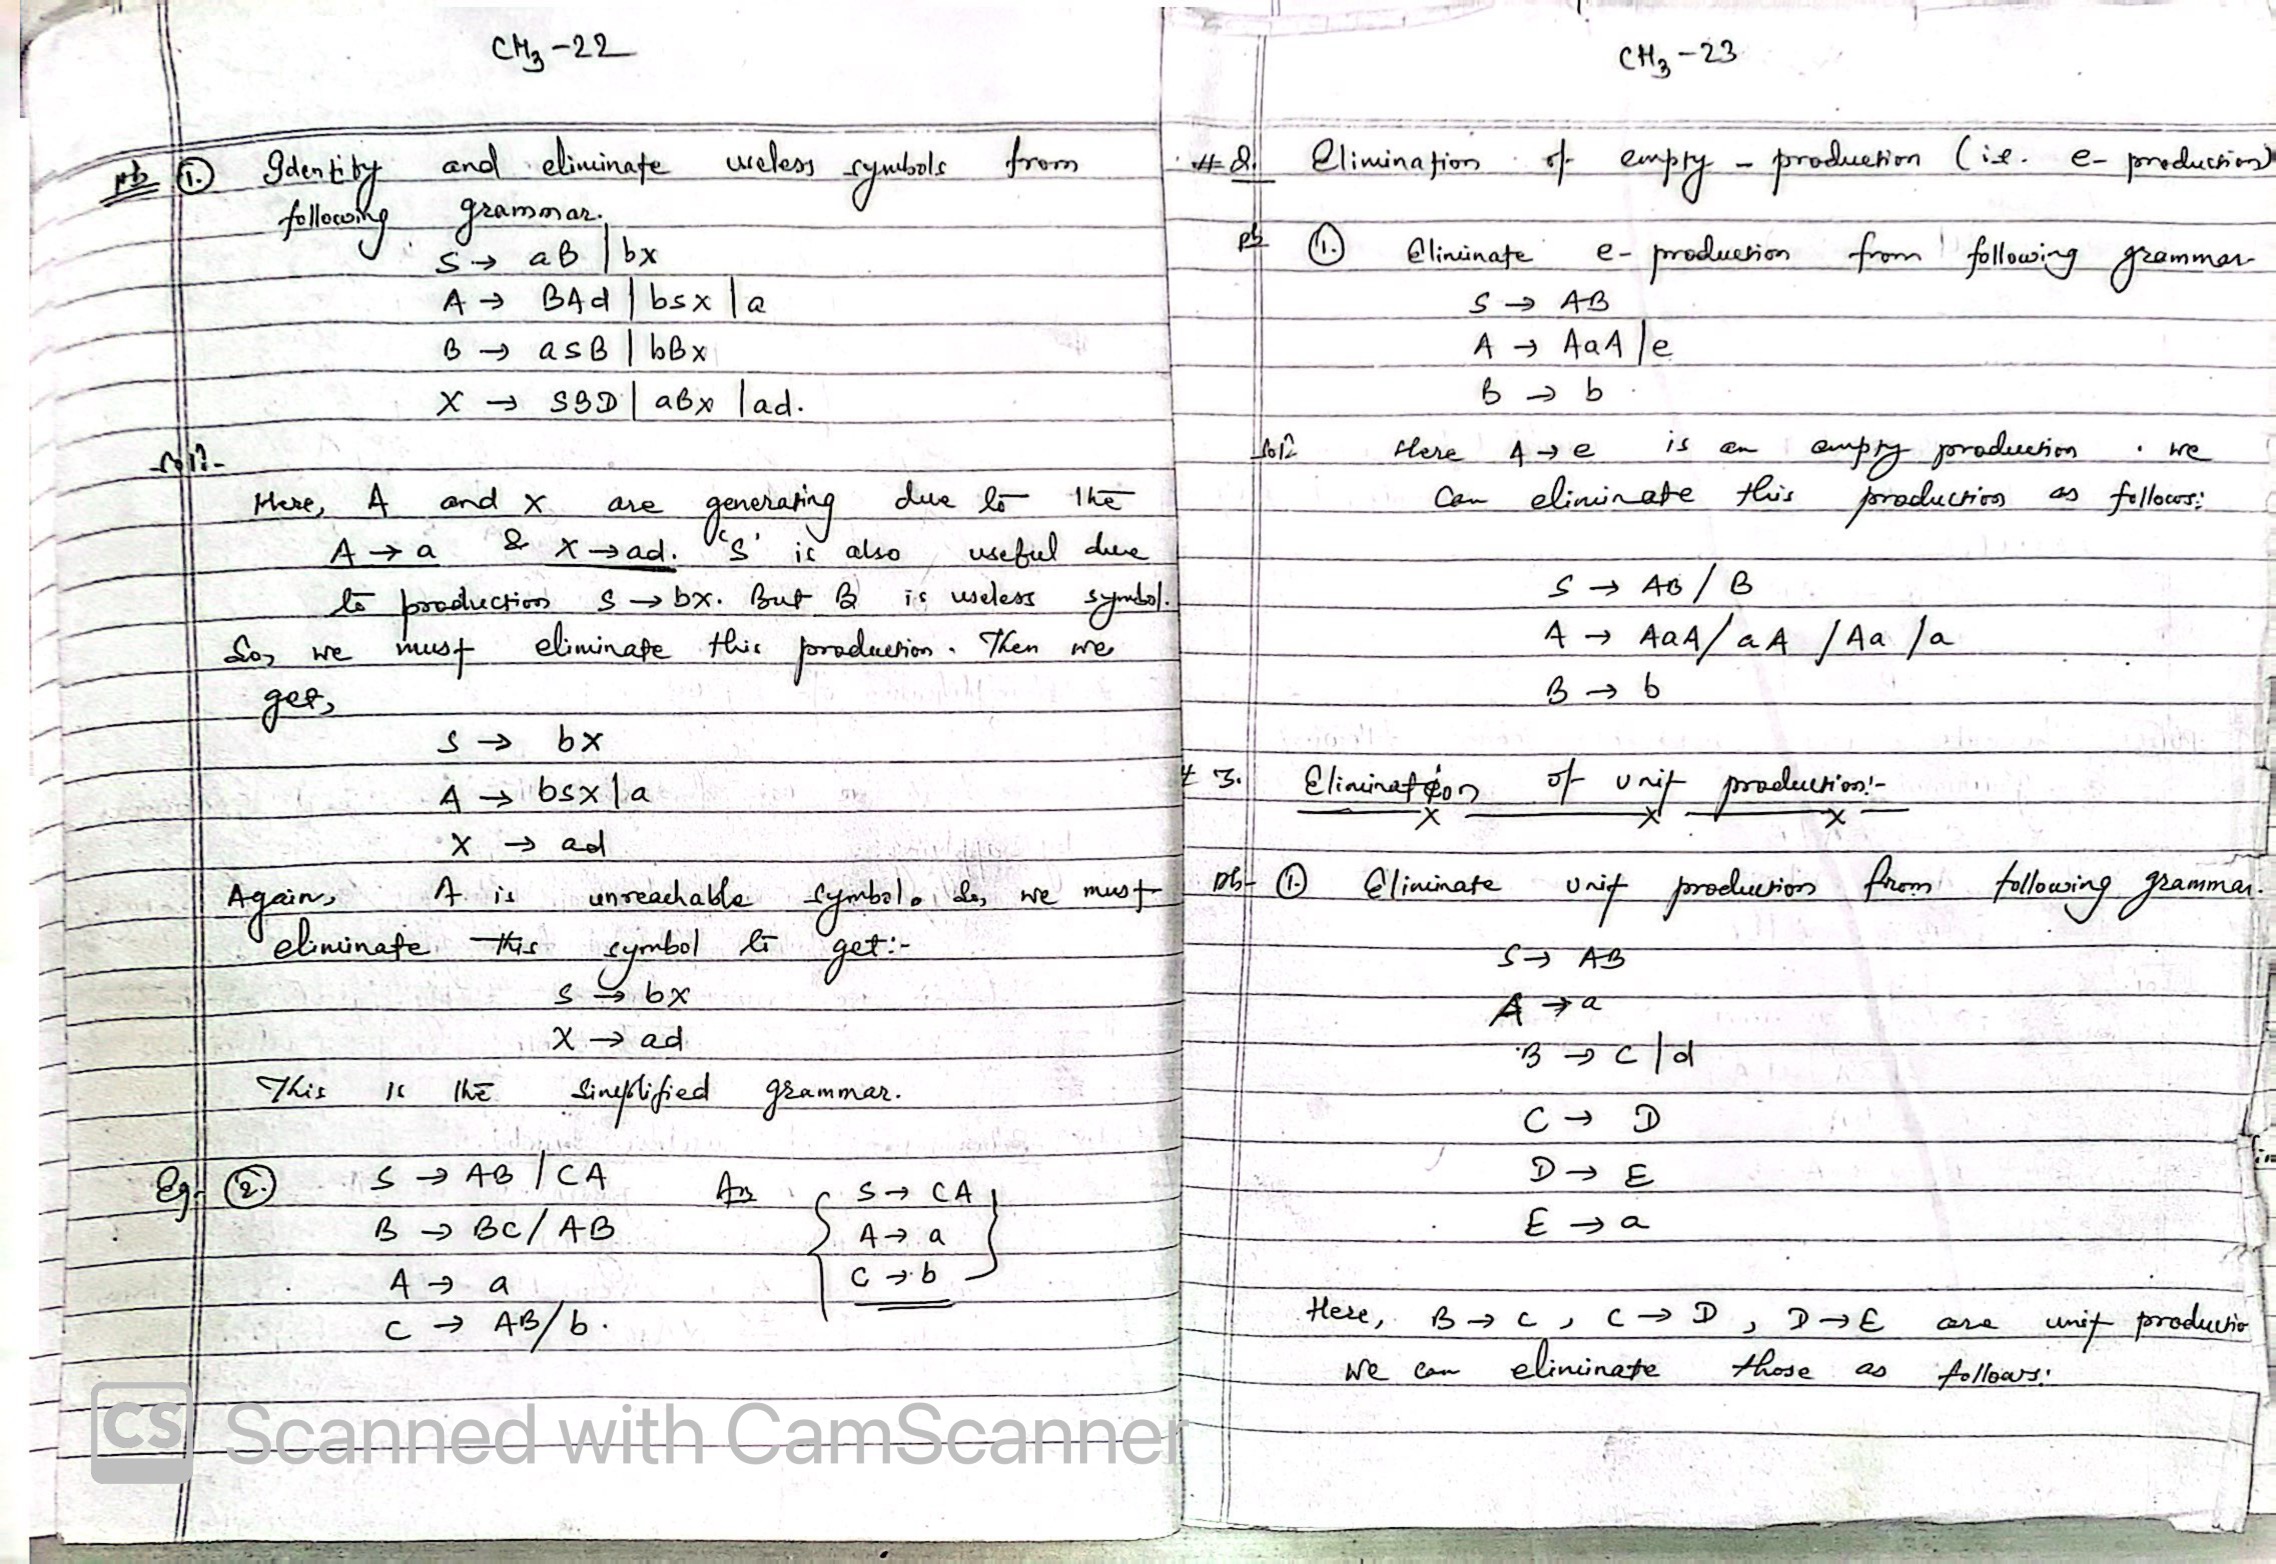 CH3 - 22
pb 1. Identity and eliminate useless symbols from
following grammar.
S → aB | bx
A → BAd | bsx | a
B → asB | bBx
X → SBD | aBx | ad.
Soln-
Here, A and X are generating due to the
A → a & X → ad. 'S' is also useful due
to production S → bx. But B is useless symbol.
So, we must eliminate this production. Then we
get,
S → bx
A → bsx | a
X → ad
Again, A is unreachable symbol. So, we must
eliminate this symbol to get:-
S → bx
X → ad
This is the simplified grammar.
Eg:- 2. S → AB / CA
B → BC / AB
A → a
C → AB / b.
An
S → CA
A → a
C → b
CS Scanned with CamScanner
CH3 - 23
# 2. Elimination of empty - production (i.e. e- production)
pb 1. Eliminate e- production from following grammar
S → AB
A → AaA | e
B → b
Soln Here A → e is an empty production. we
can eliminate this production as follows:
S → AB / B
A → AaA / aA / Aa / a
B → b
# 3. Elimination of unit production:-
pb- 1. Eliminate unit production from following grammar.
S → AB
A → a
B → C | d
C → D
D → E
E → a
Here, B → C, C → D, D → E are unit productio
we can eliminate those as follows: